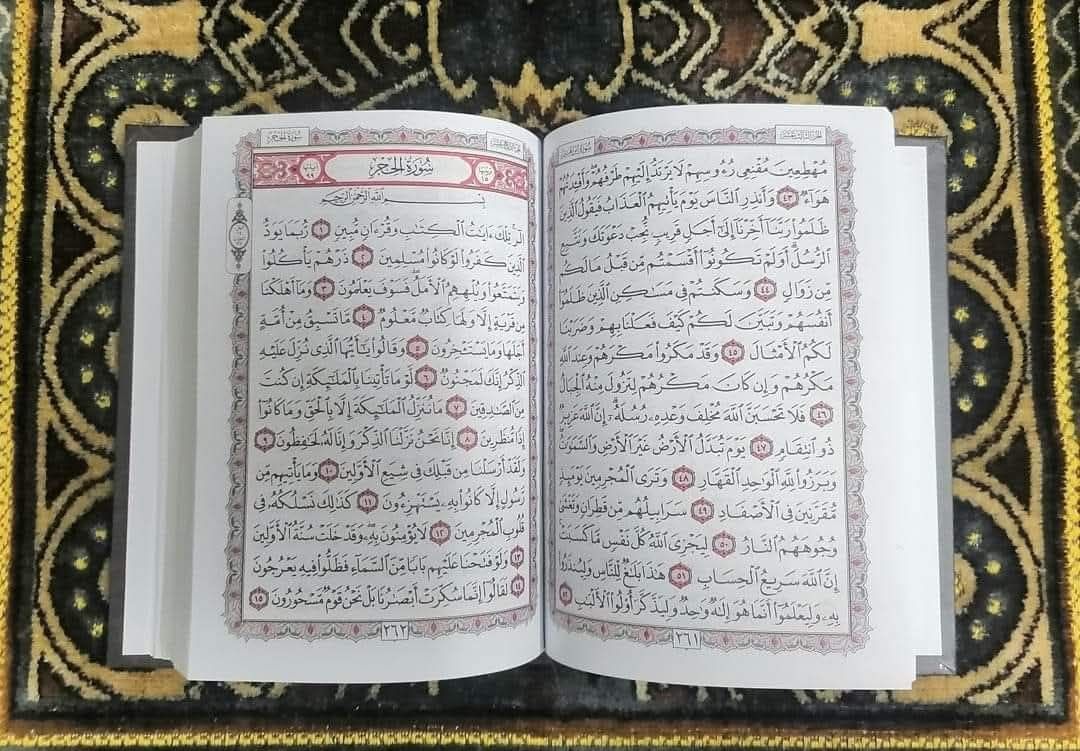 الجزء الثالث عشر سورة إبراهيم
مُهْطِعِينَ مُقْنِعِي رُءُوسِهِمْ لَا يَرْتَدُّ إِلَيْهِمْ طَرْفُهُمْ ۖ وَأَفْـِٔدَتُهُمْ
هَوَآءٌ ٤٣ وَأَنذِرِ ٱلنَّاسَ يَوْمَ يَأْتِيهِمُ ٱلْعَذَابُ فَيَقُولُ ٱلَّذِينَ
ظَلَمُوا۟ رَبَّنَآ أَخِّرْنَآ إِلَىٰٓ أَجَلٍ قَرِيبٍ نُّجِبْ دَعْوَتَكَ وَنَتَّبِعِ
ٱلرُّسُلَ ۗ أَوَلَمْ تَكُونُوٓا۟ أَقْسَمْتُم مِّن قَبْلُ مَا لَكُم
مِّن زَوَالٍ ٤٤ وَسَكَنتُمْ فِي مَسَـٰكِنِ ٱلَّذِينَ ظَلَمُوٓا۟
أَنفُسَهُمْ وَتَبَيَّنَ لَكُمْ كَيْفَ فَعَلْنَا بِهِمْ وَضَرَبْنَا
لَكُمُ ٱلْأَمْثَالَ ٤٥ وَقَدْ مَكَرُوا۟ مَكْرَهُمْ وَعِندَ ٱللَّهِ
مَكْرُهُمْ وَإِن كَانَ مَكْرُهُمْ لِتَزُولَ مِنْهُ ٱلْجِبَالُ
٤٦ فَلَا تَحْسَبَنَّ ٱللَّهَ مُخْلِفَ وَعْدِهِۦ رُسُلَهُۥٓ ۗ إِنَّ ٱللَّهَ عَزِيزٌ
ذُو ٱنتِقَامٍ ٤٧ يَوْمَ تُبَدَّلُ ٱلْأَرْضُ غَيْرَ ٱلْأَرْضِ وَٱلسَّمَـٰوَٰتُ
وَبَرَزُوا۟ لِلَّهِ ٱلْوَٰحِدِ ٱلْقَهَّارِ ٤٨ وَتَرَى ٱلْمُجْرِمِينَ يَوْمَئِذٍ
مُّقَرَّنِينَ فِي ٱلْأَصْفَادِ ٤٩ سَرَابِيلُهُم مِّن قَطِرَانٍ وَتَغْشَىٰ
وُجُوهَهُمُ ٱلنَّارُ ٥٠ لِيَجْزِيَ ٱللَّهُ كُلَّ نَفْسٍ مَّا كَسَبَتْ ۚ
إِنَّ ٱللَّهَ سَرِيعُ ٱلْحِسَابِ ٥١ هَـٰذَا بَلَـٰغٌ لِّلنَّاسِ وَلِيُنذَرُوا۟
بِهِۦ وَلِيَعْلَمُوٓا۟ أَنَّمَا هُوَ إِلَـٰهٌ وَٰحِدٌ وَلِيَذَّكَّرَ أُو۟لُوا۟ ٱلْأَلْبَـٰبِ ٥٢
٢٦١
الجزء الرابع عشر سورة الحجر
سُورَةُ الحِجْرِ
بِسْمِ ٱللَّهِ ٱلرَّحْمَـٰنِ ٱلرَّحِيمِ
الٓر ۚ تِلْكَ ءَايَـٰتُ ٱلْكِتَـٰبِ وَقُرْءَانٍ مُّبِينٍ ١ رُّبَمَا يَوَدُّ
ٱلَّذِينَ كَفَرُوا۟ لَوْ كَانُوا۟ مُسْلِمِينَ ٢ ذَرْهُمْ يَأْكُلُوا۟
وَيَتَمَتَّعُوا۟ وَيُلْهِهِمُ ٱلْأَمَلُ ۖ فَسَوْفَ يَعْلَمُونَ ٣ وَمَآ أَهْلَكْنَا
مِن قَرْيَةٍ إِلَّا وَلَهَا كِتَابٌ مَّعْلُومٌ ٤ مَّا تَسْبِقُ مِنْ أُمَّةٍ
أَجَلَهَا وَمَا يَسْتَـْٔخِرُونَ ٥ وَقَالُوا۟ يَـٰٓأَيُّهَا ٱلَّذِي نُزِّلَ عَلَيْهِ
ٱلذِّكْرُ إِنَّكَ لَمَجْنُونٌ ٦ لَّوْ مَا تَأْتِينَا بِٱلْمَلَـٰٓئِكَةِ إِن كُنتَ
مِنَ ٱلصَّـٰدِقِينَ ٧ مَا نُنَزِّلُ ٱلْمَلَـٰٓئِكَةَ إِلَّا بِٱلْحَقِّ وَمَا كَانُوٓا۟
إِذًا مُّنظَرِينَ ٨ إِنَّا نَحْنُ نَزَّلْنَا ٱلذِّكْرَ وَإِنَّا لَهُۥ لَحَـٰفِظُونَ ٩
وَلَقَدْ أَرْسَلْنَا مِن قَبْلِكَ فِي شِيَعِ ٱلْأَوَّلِينَ ١٠ وَمَا يَأْتِيهِم مِّن
رَّسُولٍ إِلَّا كَانُوا۟ بِهِۦ يَسْتَهْزِءُونَ ١١ كَذَٰلِكَ نَسْلُكُهُۥ فِي
قُلُوبِ ٱلْمُجْرِمِينَ ١٢ لَا يُؤْمِنُونَ بِهِۦ ۖ وَقَدْ خَلَتْ سُنَّةُ ٱلْأَوَّلِينَ
١٣ وَلَوْ فَتَحْنَا عَلَيْهِم بَابًا مِّنَ ٱلسَّمَآءِ فَظَلُّوا۟ فِيهِ يَعْرُجُونَ
١٤ لَقَالُوٓا۟ إِنَّمَا سُكِّرَتْ أَبْصَـٰرُنَا بَلْ نَحْنُ قَوْمٌ مَّسْحُورُونَ ١٥
٢٦٢